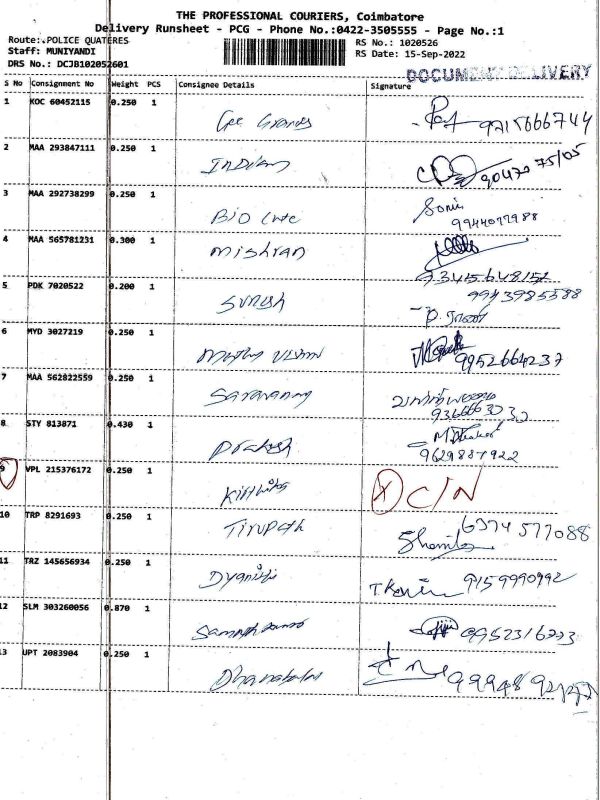 THE PROFESSIONAL COURIERS, Coimbatore
Delivery Runsheet - PCG - Phone No.:0422-3505555 - Page No.:1
Route:.POLICE QUATERES RS No.: 1020526
Staff: MUNIYANDI RS Date: 15-Sep-2022
DRS No.: DCJB102052601 DOCUMENT DELIVERY
S No Consignment No Weight PCS Consignee Details Signature
1 KOC 60452115 0.250 1
Gee Grands 9715666744
2 MAA 293847111 0.250 1
90470 75105
3 MAA 292738299 0.250 1 Sonia
Bio Care 9944077988
4 MAA 565781231 0.300 1
Mishran
9341564815
5 PDK 7020522 0.200 1 9943985588
Suresh
6 MYD 3027219 0.250 1
9952664237
7 MAA 562822559 0.250 1
Saravanan
8 STY 813871 0.430 1
Prakash 9629887922
9 VPL 215376172 0.250 1
X C/N
10 TRP 8291693 0.250 1 6374 577088
Tirupath
11 TRZ 145656934 0.250 1
9159990992
12 SLM 303260056 0.870 1
9952316773
13 UPT 2083904 0.250 1
Dhanabalan